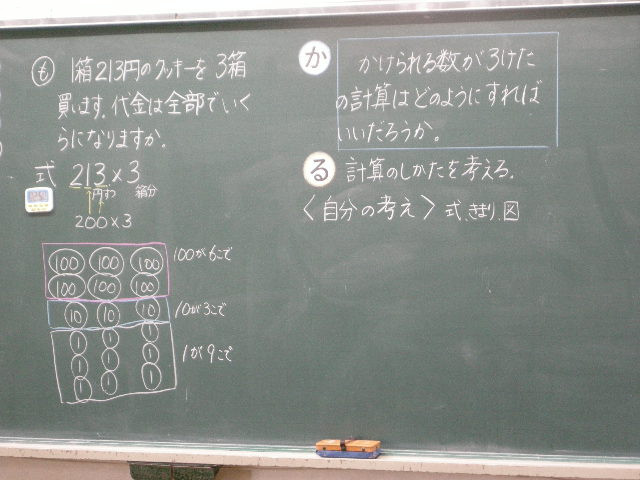 も 1箱213円のクッキーを3箱
買います。代金は全部でいく
らになりますか。
式 213×3
円ずつ 箱分
200×3
100 100 100
100 100 100
100が6こで
10 10 10
10が3こで
1 1 1
1 1 1
1 1 1
1が9こで
か かけられる数が3けた
の計算はどのようにすれば
いいだろうか。
る 計算のしかたを考える。
〈自分の考え〉式、きまり、図